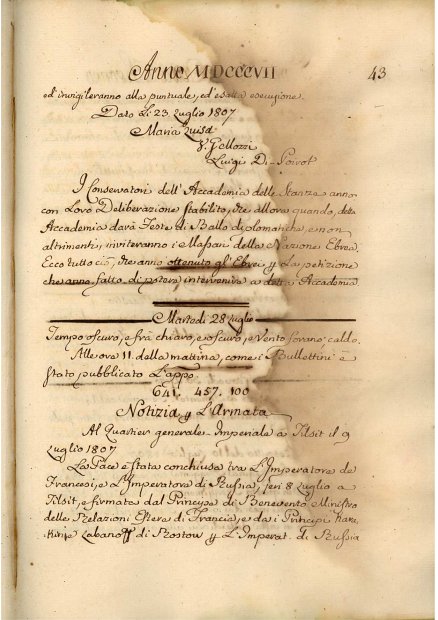 Anno MDCCCVII
43
ed' invigileranno alla puntuale, ed' esatta esecuzione.
Dato Li 23 Luglio 1807
Maria Luisa
V. Gellozzi
Luigi Di-Poirot
I Conservatori dell' Accademia delle Stanze anno
con Loro Deliberazione stabilito, che allora quando, detta
Accademia darà Feste di Ballo diplomatiche, e non
altrimenti, inviteranno i Massari della Nazione Ebrea
Ecco tutto ciò, che anno ottenuto gl' Ebrei p La petizione
che anno fatto di potere intervenire a detta Accademia
Martedi 28 Luglio
Tempo oscuro, e frà chiaro, e oscuro, e Vento forano: caldo.
Alle ore 11. della mattina, come i Bullettini è
stato pubblicato L'appo
641. 457. 100
Notizia p L'Armata
Al Quartier generale Imperiale a Tilsit il 9
Luglio 1807
La Pace è stata conchiusa tra L'Imperatore de
Francesi, e L'Imperatore di Russia, jeri 8 Luglio a
Tilsit, e firmata dal Principe di Benevento Ministro
delle Relazioni Estere di Francia, e da i Principi Kura-
Kin, e Labanoff di Rostow p L'Imperat. di Russia